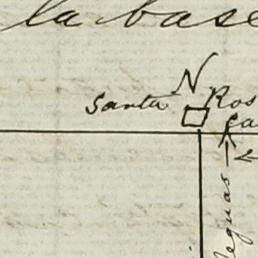 la base
N
Santa Ros
Ca
leguas